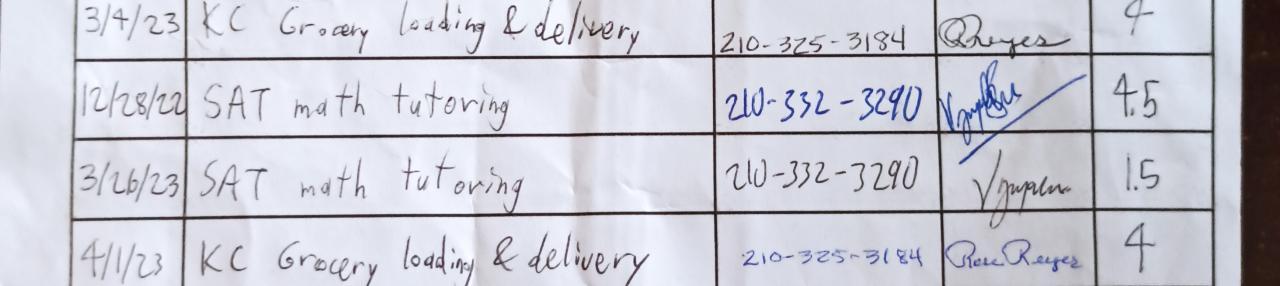 3/4/23 KC Grocery loading & delivery 210-325-3184 Reyes 4
12/28/22 SAT math tutoring 210-332-3290 4.5
3/26/23 SAT math tutoring 210-332-3290 1.5
4/1/23 KC Grocery loading & delivery 210-325-3184 Rose Reyes 4